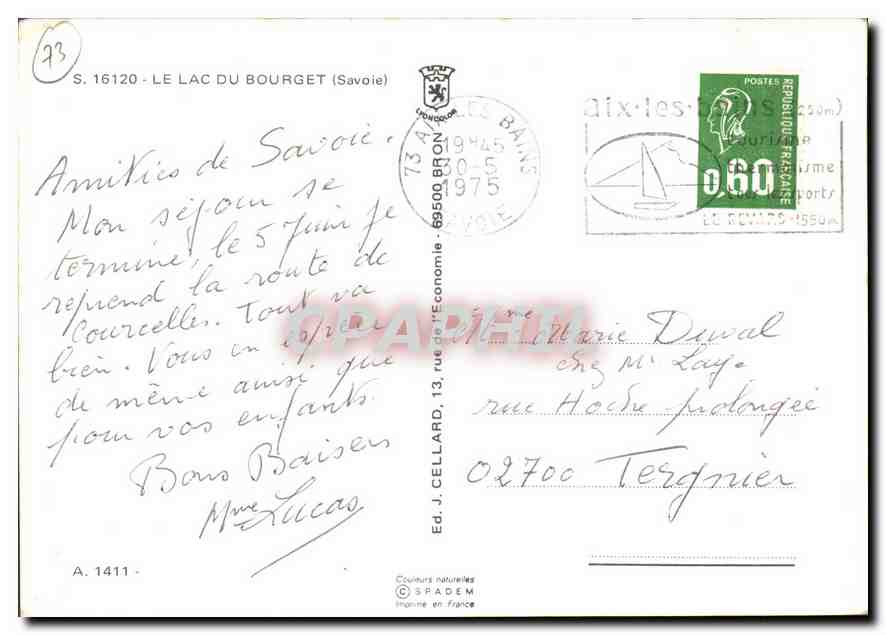 73
S. 16120 - LE LAC DU BOURGET (Savoie)
LYONCOLOR
Amitiés de Savoie.
Mon séjour se
termine, le 5 Juin je
reprend la route de
Courcelles. Tout va
bien. Vous en espère
de même ainsi que
pour vos enfants.
Bons Baisers
Mme Lucas
A. 1411 -
Ed. J. CELLARD, 13, rue de l'Economie - 69500 BRON
Couleurs naturelles
© SPADEM
Imprimé en France
73 AIX LES BAINS
19H45
30-5
1975
SAVOIE
aix·les·bains (250m)
tourisme
thermalisme
tous les sports
LE REVARD-1550m
POSTES
REPUBLIQUE FRANCAISE
0,60
Mme Marie Duval
chez Mr Laye
rue Hoche prolongée
02700 Tergnier
CPAPHIL